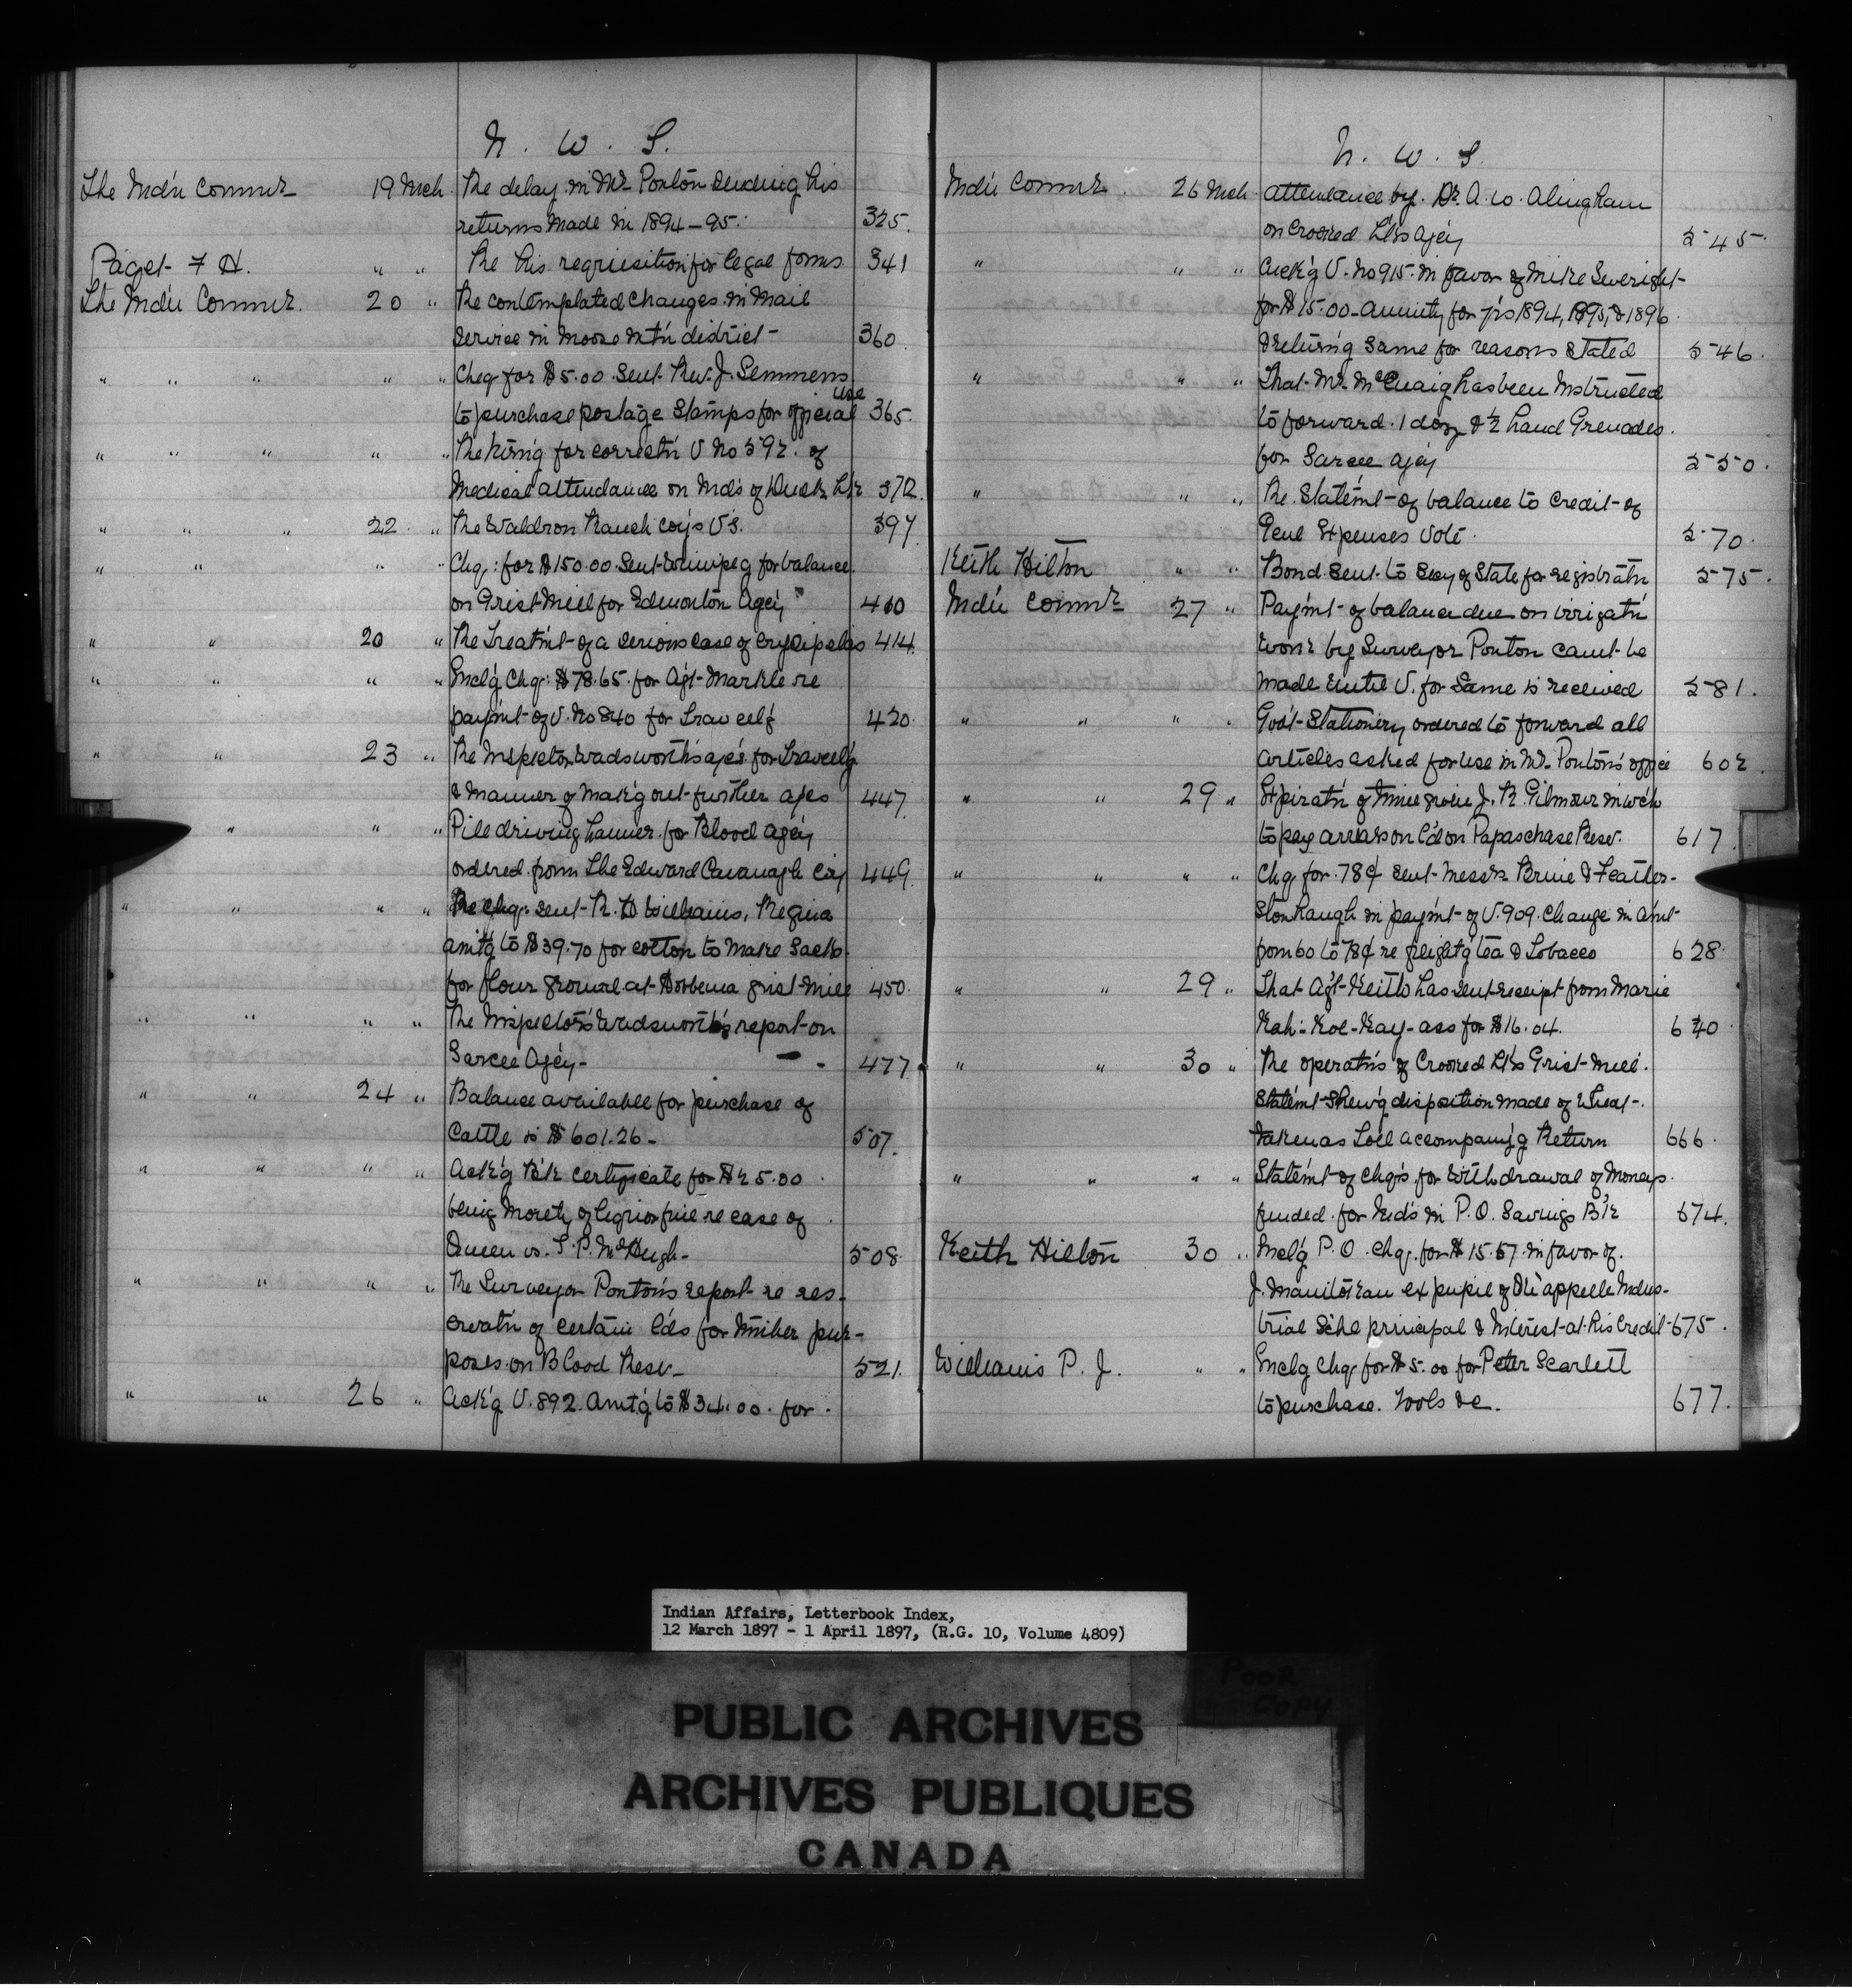 N. W. T.
The Ind'n Commr 19 Mch. Re delay in Mr. Ponton sending his
returns made in 1894-95. 325.
Paget F H. " " Re his requisition for legal forms 341
The Ind'n Commr. 20 " Re contemplated changes in mail
service in Moose Mt'n district 360.
" " " " " Chq for $5.00 sent Rev. J. Semmens
to purchase postage stamps for official use 365.
" " " " " Re for correct'n V No 592. of
Medical attendance on Ind's of Duck L'k 372.
" " " 22 " Re Waldron Ranch Coy's V's. 397.
" " " " Chq: for $150.00 sent Winnipeg for balance
on Grist Mill for Edmonton Ag'cy 410
" " 20 " Re Treatm't of a serious case of erysipelas 414.
" " " " Encl'g Chq: $78.65 for Ag't Markle re
paym't of V. No 840 for Travell'g 420.
" " 23 " Re Inspector Wadsworth's a/cs for Travell'g
& manner of mak'g out further a/cs 447.
" " " Pile driving hammer for Blood Ag'cy
ordered from The Edward Cavanagh Co'y 449.
" " " " Re chq: sent R. H Williams, Regina
am't'g to $39.70 for cotton to make sacks
for flour ground at grist mill 450.
" " " " Re Inspector's Wadsworth's report on
Sarcee Ag'cy - 477
" " 24 " Balance available for purchase of
Cattle is $601.26 - 507.
" " " " Ack'g B'k certificate for $25.00
being moiety of liquor fine re case of
Queen vs. T. P. McHugh - 508.
" " " " Re Surveyor Ponton's report re res-
ervat'n of certain l'ds for timber pur-
poses on Blood Resv - 521.
" " 26 " Ack'g V. 892 am't'g to $34.00 for
N. W. T.
Ind'n Commr. 26 Mch attendance by Dr. A. W. Alingham
on Crooked L'ks Ag'cy 545.
" " " Ack'g V. No 915 in favor of Mike Sweright
for $15.00 annuity for y'rs 1894, 1895, & 1896
& return'g same for reasons stated 546.
" " " That Mr. McCuaig has been instructed
to forward 1 doz & ½ hand Grenades
for Sarcee Ag'cy 550.
" " " Re. Statem't of balance to credit of
Genl Expenses Vote. 570.
Keith Hilton " " Bond sent to Secy of State for registrat'n 575.
Ind'n Commr 27 " Paym't of balance due on irrigat'n
work by Surveyor Ponton can't be
made until V. for same is received 581.
" " " " Gov't Stationery ordered to forward all
articles asked for use in Mr. Ponton's office 602.
" " 29 " Expirat'n of time given J. R. Gilmour in w'ch
to pay arrears on l'd on Papaschase Resv. 617.
" " " " Chq for 78¢ sent Messrs Brine & Feather-
stonhaugh in paym't of V. 909. Change in am't
from 60 to 78¢ re freight'g tea & tobacco 628.
" " 29 " That Ag't Keith has sent receipt from Marie
Kah-Koe-Kay-ass for $16.04. 640.
" " 30 " Re operat'ns of Crooked L'ks Grist Mill.
Statem't shew'g disposition made of wheat
taken as toll accompany'g Return 666.
" " " " Statem't of chq's for withdrawal of moneys
funded for Ind's in P. O. Savings B'k 674.
Keith Hilton 30 " Encl'g P. O. chq. for $15.57 in favor of
J. Manitokan ex pupil of Qu'appelle Indus-
trial Schl principal & interest at his credit 675.
Williams P. J. " " Enclg chq for $5.00 for Peter Scarlett
to purchase. tools &c. 677.
Indian Affairs, Letterbook Index,
12 March 1897 - 1 April 1897, (R.G. 10, Volume 4809)
POOR
COPY
PUBLIC ARCHIVES
ARCHIVES PUBLIQUES
CANADA